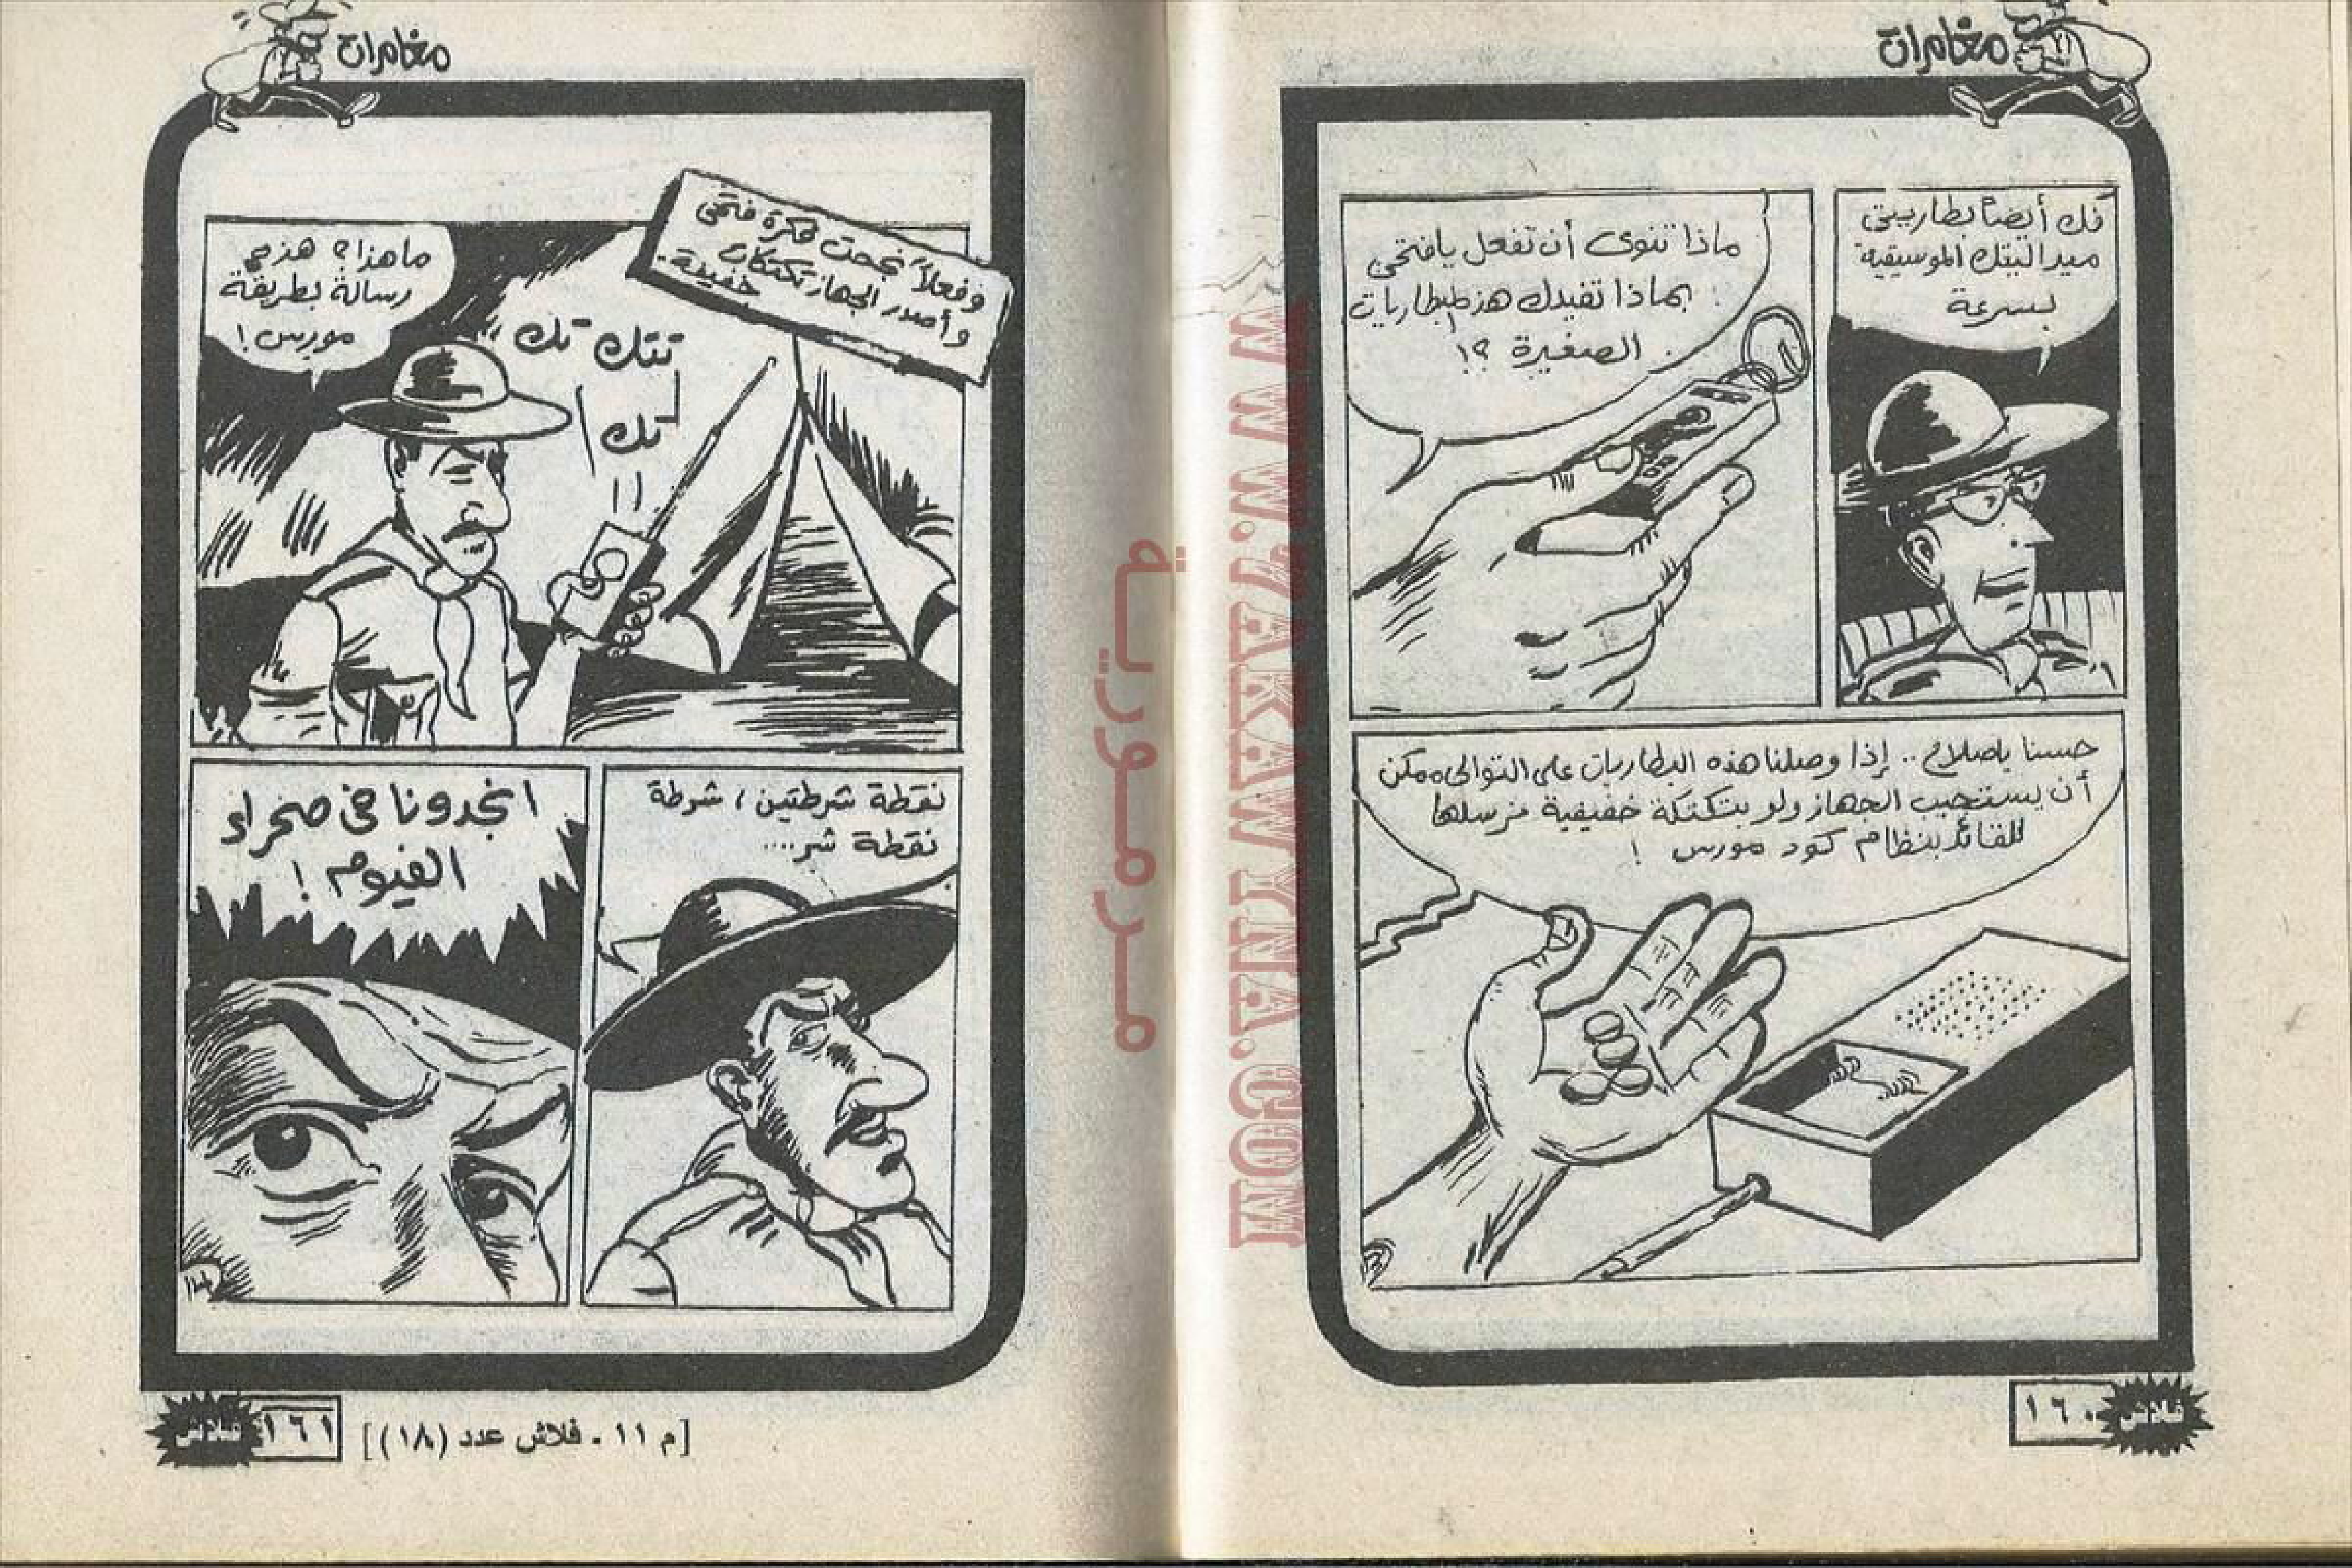 مغامرات
فك أيضاً بطاريتى
ميداليتك الموسيقية
بسرعة
ماذا تنوى أن تفعل يا فتحى
بماذا تفيدك هذه البطاريات
الصغيرة ؟!
حسنا يا صلاح .. إذا وصلنا هذه البطاريات على التوالى ممكن
أن يستجيب الجهاز ولو بتكتكة خفيفة نرسلها
للقائد بنظام كود مورس !
١٦٠
فلاش
WWW.YARAKWKNA.COM
مرمورية
مغامرات
وفعلاً نجحت فكرة فتحى
وأصدر الجهاز تكتكات
خفيفة.
ما هذا ؟ هذه
رسالة بطريقة
مورس !
تتك تك
تك
نقطة شرطتين / شرطة
نقطة شر....
انجدونا فى صحراء
الفيوم !
[م ١١ - فلاش عدد (١٨)]
١٦١
فلاش